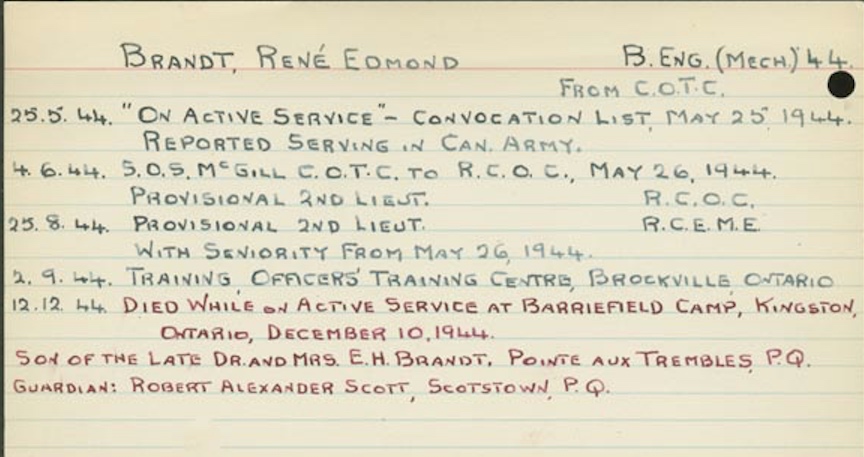 BRANDT, RENÉ EDMOND B. ENG. (MECH.) '44.
FROM C.O.T.C.
25.5.44. "ON ACTIVE SERVICE" - CONVOCATION LIST, MAY 25, 1944.
REPORTED SERVING IN CAN. ARMY.
4.6.44. S.O.S. McGILL C.O.T.C. TO R.C.O.C., MAY 26, 1944.
PROVISIONAL 2ND LIEUT. R.C.O.C.
25.8.44. PROVISIONAL 2ND LIEUT. R.C.E.M.E.
WITH SENIORITY FROM MAY 26, 1944.
2.9.44. TRAINING, OFFICERS' TRAINING CENTRE, BROCKVILLE, ONTARIO
12.12.44 DIED WHILE ON ACTIVE SERVICE AT BARRIEFIELD CAMP, KINGSTON,
ONTARIO, DECEMBER 10, 1944.
SON OF THE LATE DR. AND MRS. E.H. BRANDT, POINTE AUX TREMBLES, P.Q.
GUARDIAN: ROBERT ALEXANDER SCOTT, SCOTSTOWN, P.Q.